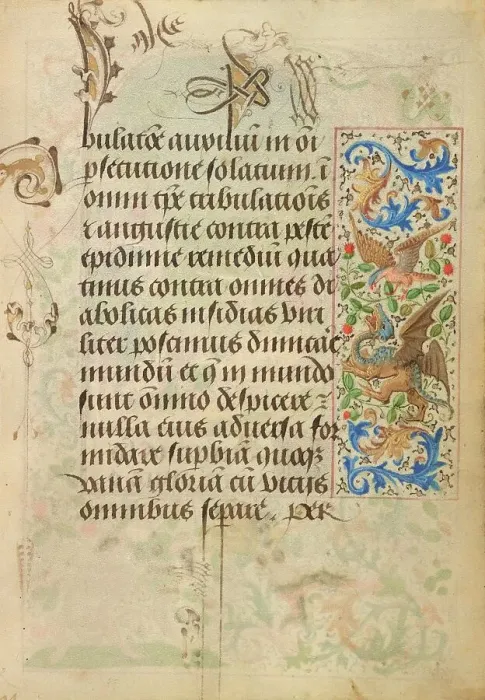 bulatōe auxiliū in oī
psecutione solatium. ī
omni tpē tribulatiōis
⁊ angustie contra pestē
epidimie remediū qua
tinus contra omnes di
abolicas insidias viri
liter possimus dimicāē
mundū et q̄ in mundo
sunt om̄no despicere ⁊
nulla eius adversa for
midare supbiā quoqꝫ
vanā gloriā cū vicijs
omnibus sepaē. Per